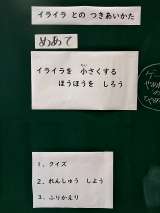 イライラ との つきあいかた
めあて
イライラを 小さくする
ほうほうを しろう
1. クイズ
2. れんしゅう しよう
3. ふりかえり